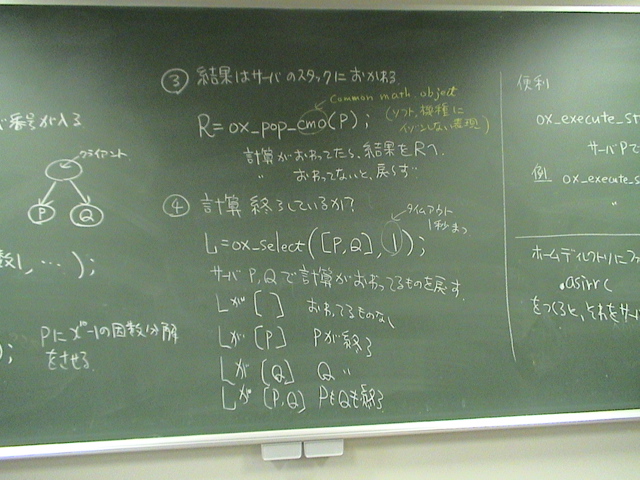 番号が入る
クライアント
P Q
数1, …);
Pにx -1の因数分解
をさせる
③ 結果はサーバのスタックにおかれる.
common math. object
R=ox_pop_cmo(P);
(ソフト, 機種に
イゾンしない表現)
計算がおわってたら, 結果をRへ.
〃 おわってないと, 戻らず.
④ 計算終了しているか?
タイムアウト
1秒まつ
L=ox_select([P,Q],1);
サーバP,Qで計算がおわってるものを戻す.
Lが [ ] おわってるものなし
Lが [P] Pが終了
Lが [Q] Q 〃
Lが [P,Q] PもQも終了
便利
ox_execute_st
サーバPで
例 ox_execute_s
〃
ホームディレクトリにフ
.asirrc
をつくると, それをサーバ